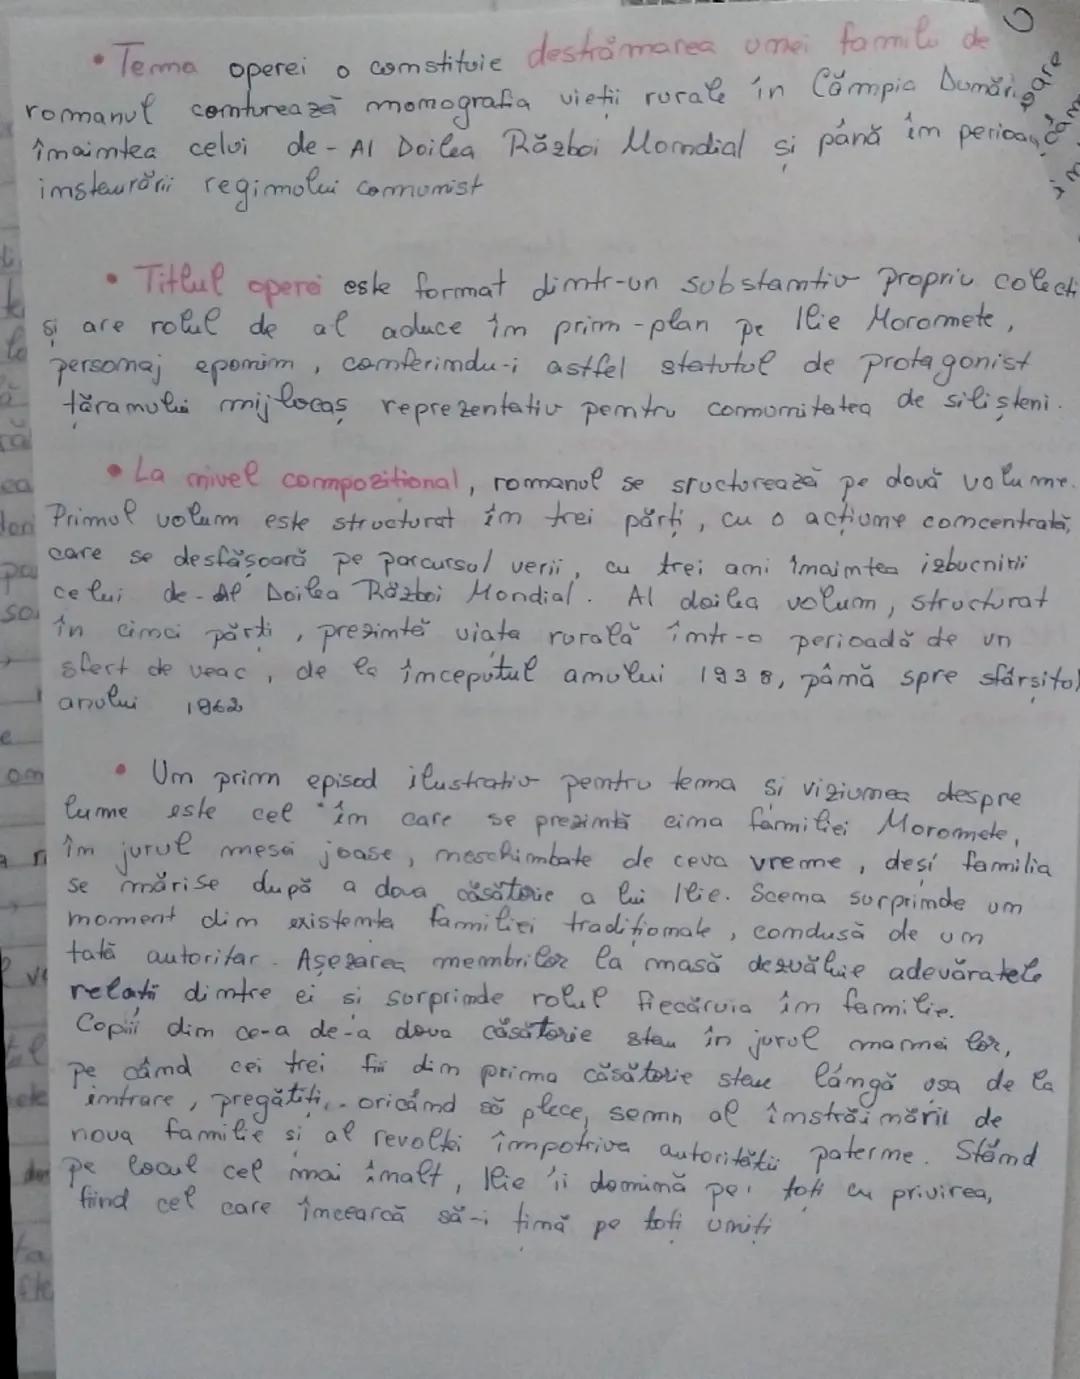 • Tema operei o constituie destrămarea unei familii de
romanul conturează monografia vieții rurale în Câmpia Dunării
înaintea celui de-Al Doilea Război Mondial și până în perioa
instaurării regimului comunist
• Titlul operei este format dintr-un substantiv propriu colecti
și are rolul de al aduce în prim-plan pe Ilie Moromete,
personaj eponim, conferindu-i astfel statutul de protagonist
țăranului mijlocaș reprezentativ pentru comunitatea de silișteni.
• La nivel compozițional, romanul se sructurează pe două volume.
Primul volum este structurat în trei părți, cu o acțiune concentrată,
care se desfășoară pe parcursul verii, cu trei ani înaintea izbucnirii
celui de-Al Doilea Război Mondial. Al doilea volum, structurat
în cinci părți, prezintă viața rurală într-o perioadă de un
sfert de veac, de la începutul anului 1938, până spre sfârșitol
anului 1962
• Un prim episod ilustrativ pentru tema și viziunea despre
lume este cel în care se prezintă cina familiei Moromete,
în jurul mesei joase, neschimbate de ceva vreme, deși familia
se mărise după a doua căsătorie a lui Ilie. Scena surprinde un
moment din existența familiei tradiționale, condusă de un
tată autoritar. Așezarea membrilor la masă dezvăluie adevăratele
relații dintre ei și surprinde rolul fiecăruia în familie.
Copiii din ce-a de-a doua căsătorie stau în jurul mamei lor,
pe când cei trei fii din prima căsătorie stau lângă ușa de la
intrare, pregătiți oricând să plece, semn al înstrăinării de
noua familie și al revoltei împotriva autorității paterne. Stând
pe locul cel mai înalt, Ilie îi domină pe toți cu privirea,
fiind cel care încearcă să-i țină pe toți uniți